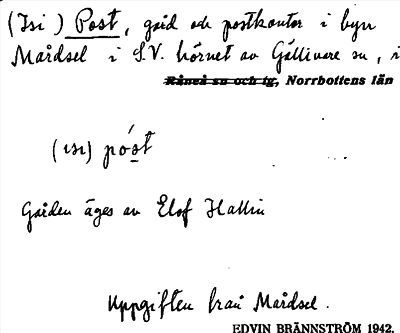 (Isi) Post, gård och postkontor i byn
Mårdsel i S.V. hörnet av Gällivare sn, i
Råneå sn och tg, Norrbottens län
(ısı) póst
Gården äges av Elof Hallin
Uppgiften från Mårdsel.
EDVIN BRÄNNSTRÖM 1942.